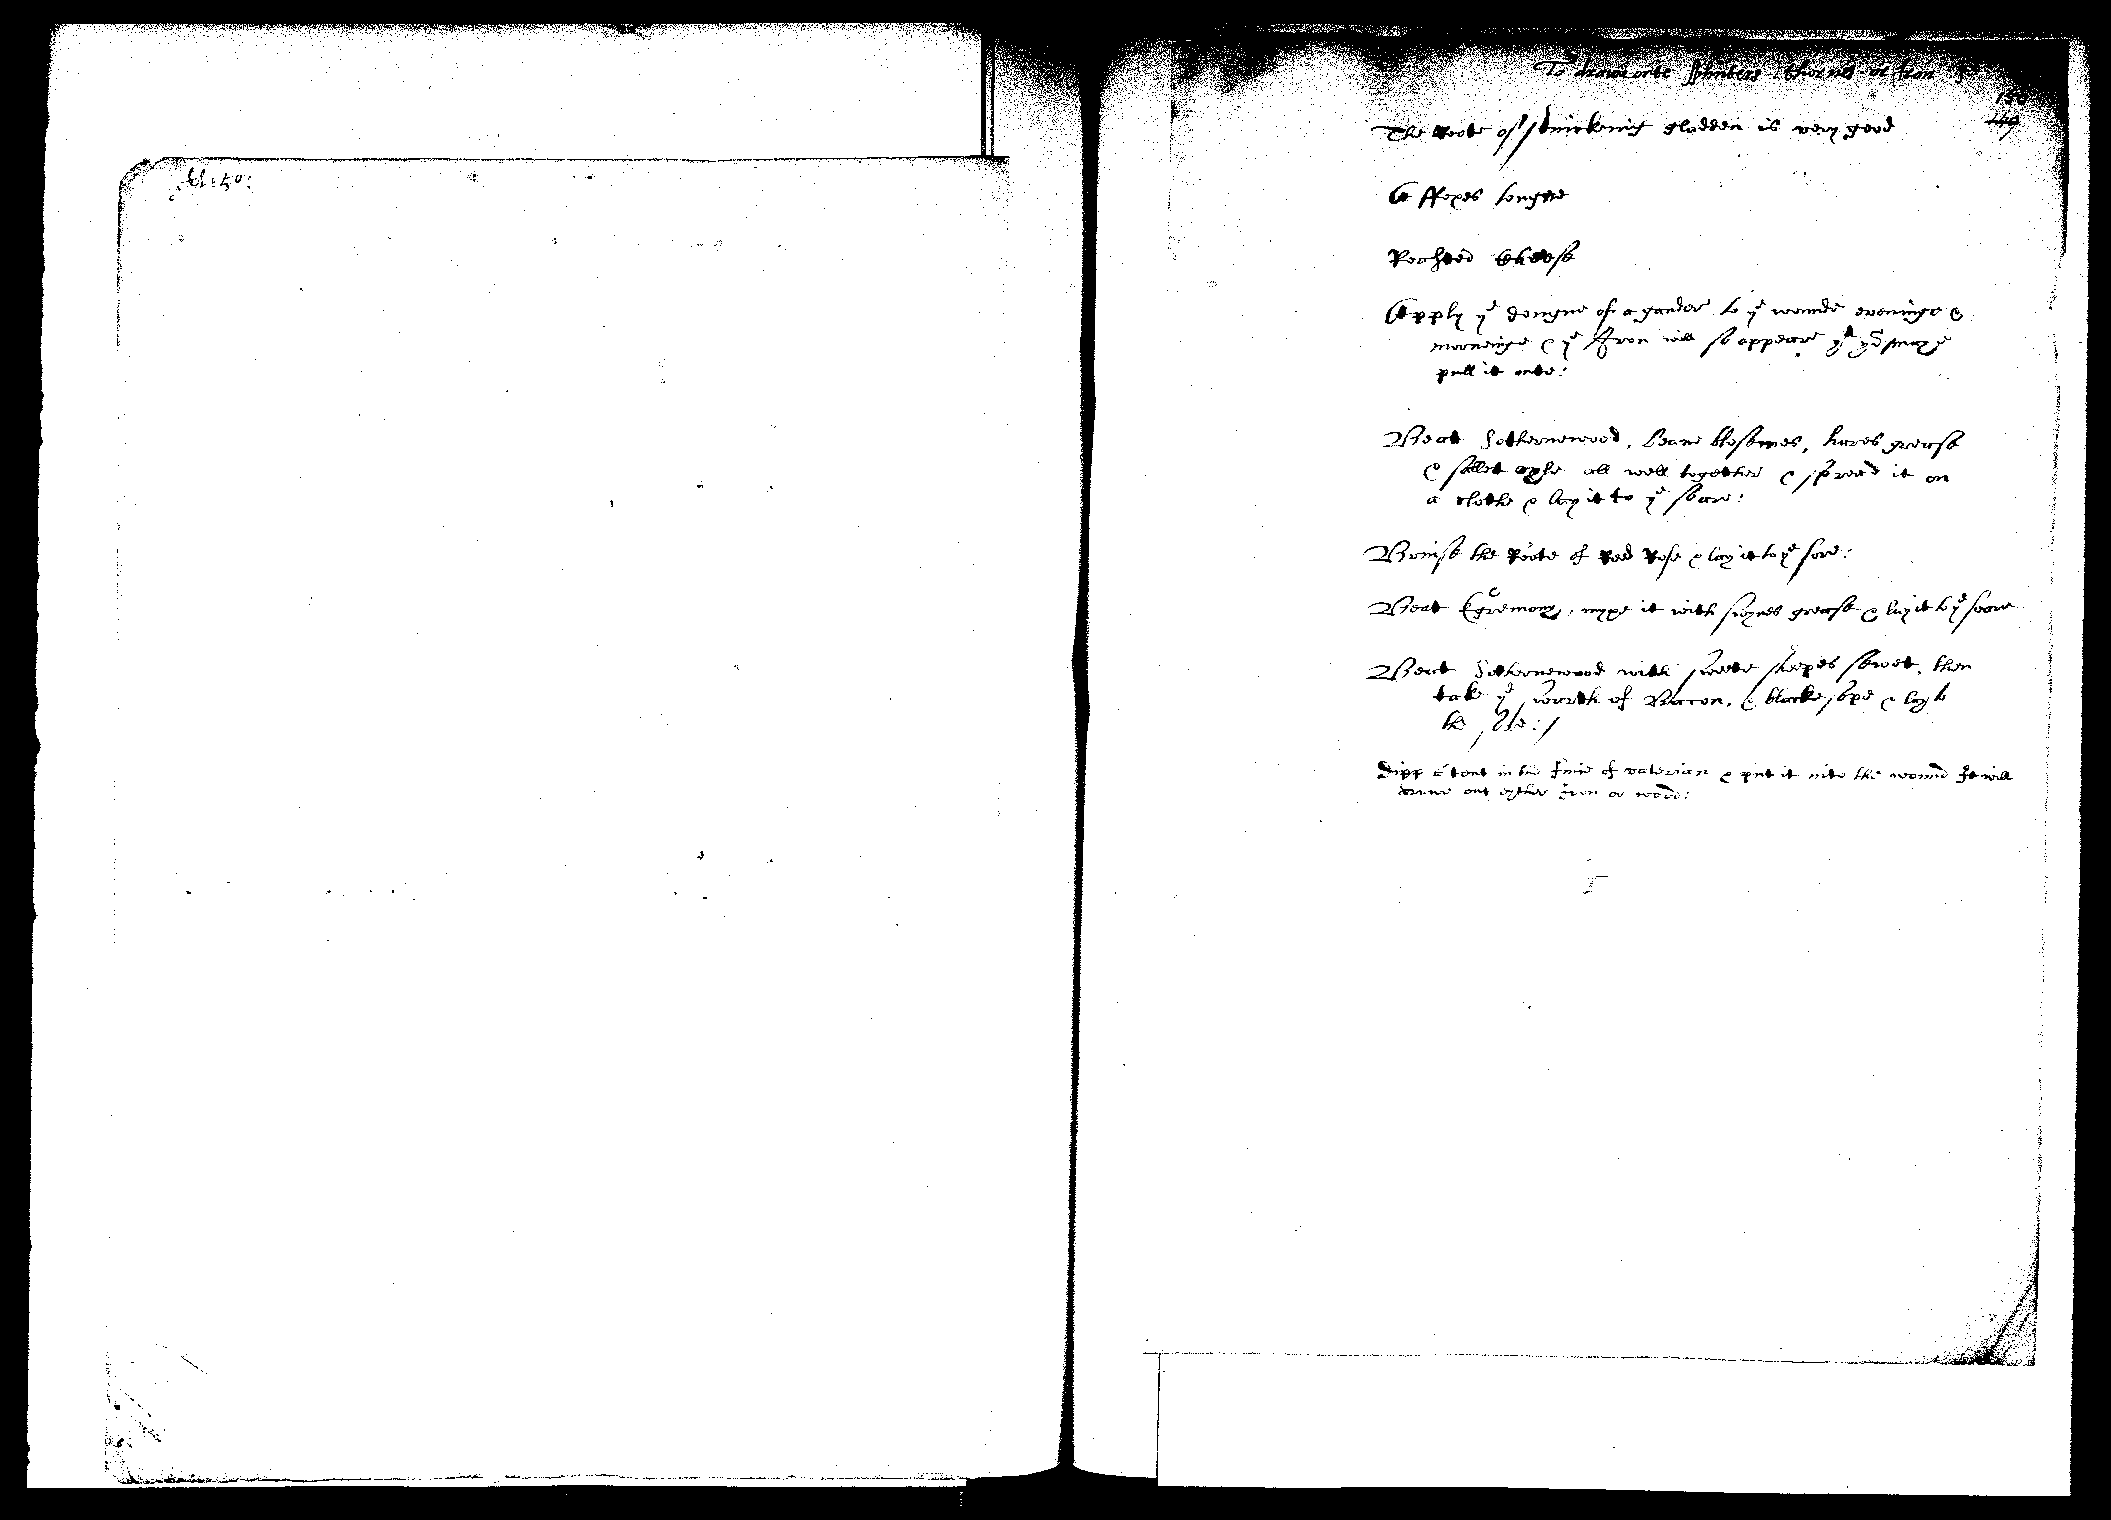 To drawe oute splinters thornes or Iron
150
149
The Roote of stinckeing gladden is very good
A ffoxes tongue
Roasted cheese
Apply yͤ dounge of a gander to yͤ wounde eveninge &
morneinge & yͤ Iron will so appeare yͭ yoͧ may
pull it oute:
Beat Sothernewood, beane blossomes, hares grease
& sallet oyle all well together & spread it on
a clothe & lay it to yͤ soare:
Bruise the Roote of Red Rose & lay it to yͤ sore:
Beat Egremony, myxe it with swynes grease & lay it to yͤ soare
Beat Sothernewood with sweete sheepes sewet, then
take yͤ swarth of Bacon, & blacke sope & lay to
the
dipp a tent in the Iuice of valerian & put it into the wound It will
drawe out eyther Iron or wood: